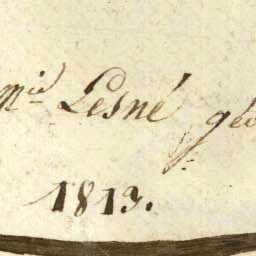 mid Lesné géo
1813.